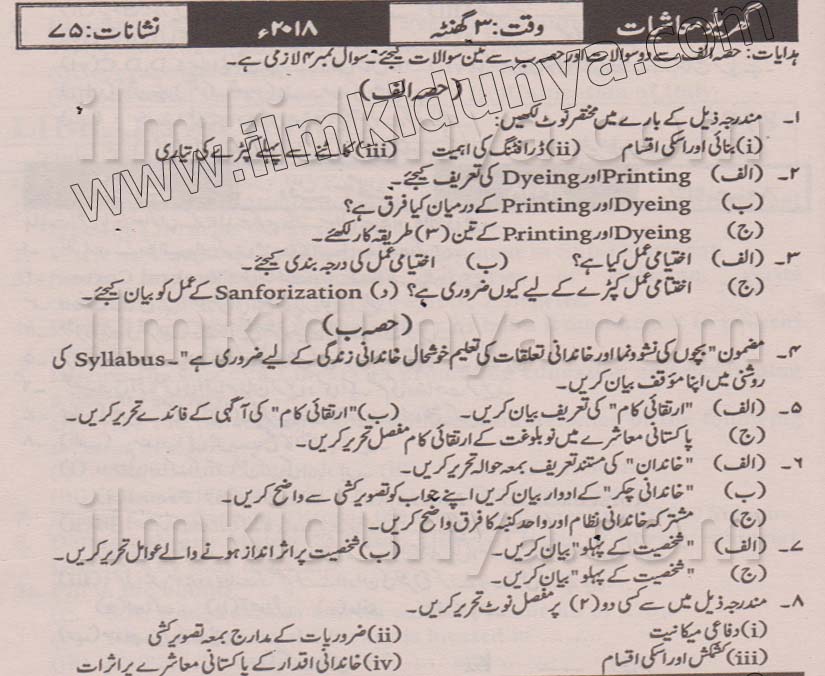 گھریلو معاشیات وقت: ۳ گھنٹہ ۲۰۱۸ء نشانات: ۷۵
ہدایات: حصہ الف سے دو سوالات اور حصہ ب سے تین سوالات کیجئے۔ سوال نمبر ۴ لازمی ہے۔
(حصہ الف)
۱۔ مندرجہ ذیل کے بارے میں مختصر نوٹ لکھیں:
(i) بنائی اور اسکی اقسام (ii) ڈرافٹنگ کی اہمیت (iii) کاٹنے سے پہلے کپڑے کی تیاری
۲۔ (الف) Printing اور Dyeing کی تعریف کیجئے۔
(ب) Dyeing اور Printing کے درمیان کیا فرق ہے؟
(ج) Dyeing اور Printing کے تین (۳) طریقہ کار لکھئے۔
۳۔ (الف) اختیامی عمل کیا ہے؟ (ب) اختیامی عمل کی درجہ بندی کیجئے۔
(ج) اختتامی عمل کپڑے کے لیے کیوں ضروری ہے؟ (د) Sanforization کے عمل کو بیان کیجئے۔
(حصہ ب)
۴۔ مضمون "بچوں کی نشوونما اور خاندانی تعلقات کی تعلیم خوشحال خاندانی زندگی کے لیے ضروری ہے"۔ Syllabus کی
روشنی میں اپنا مؤقف بیان کریں۔
۵۔ (الف) "ارتقائی کام" کی تعریف بیان کریں۔ (ب) "ارتقائی کام" کی آگہی کے فائدے تحریر کریں۔
(ج) پاکستانی معاشرے میں نو بلوغت کے ارتقائی کام مفصل تحریر کریں۔
۶۔ (الف) "خاندان" کی مستند تعریف بمعہ حوالہ تحریر کریں۔
(ب) "خاندانی چکر" کے ادوار بیان کریں اپنے جواب کو تصویر کشی سے واضح کریں۔
(ج) مشترکہ خاندانی نظام اور واحد کنبہ کا فرق واضح کریں۔
۷۔ (الف) "شخصیت کے پہلو" بیان کریں۔ (ب) شخصیت پر اثر انداز ہونے والے عوامل تحریر کریں۔
(ج) "شخصیت کے پہلو" بیان کریں۔
۸۔ مندرجہ ذیل میں سے کسی دو (۲) پر مفصل نوٹ تحریر کریں۔
(i) دفاعی میکانیت (ii) ضروریات کے مدارج بمعہ تصویر کشی
(iii) کشمکش اور اسکی اقسام (iv) خاندانی اقدار کے پاکستانی معاشرے پر اثرات
www.ilmkidunya.com
ilmkidunya.com
ilmkidunya.com
ilmkidunya.com